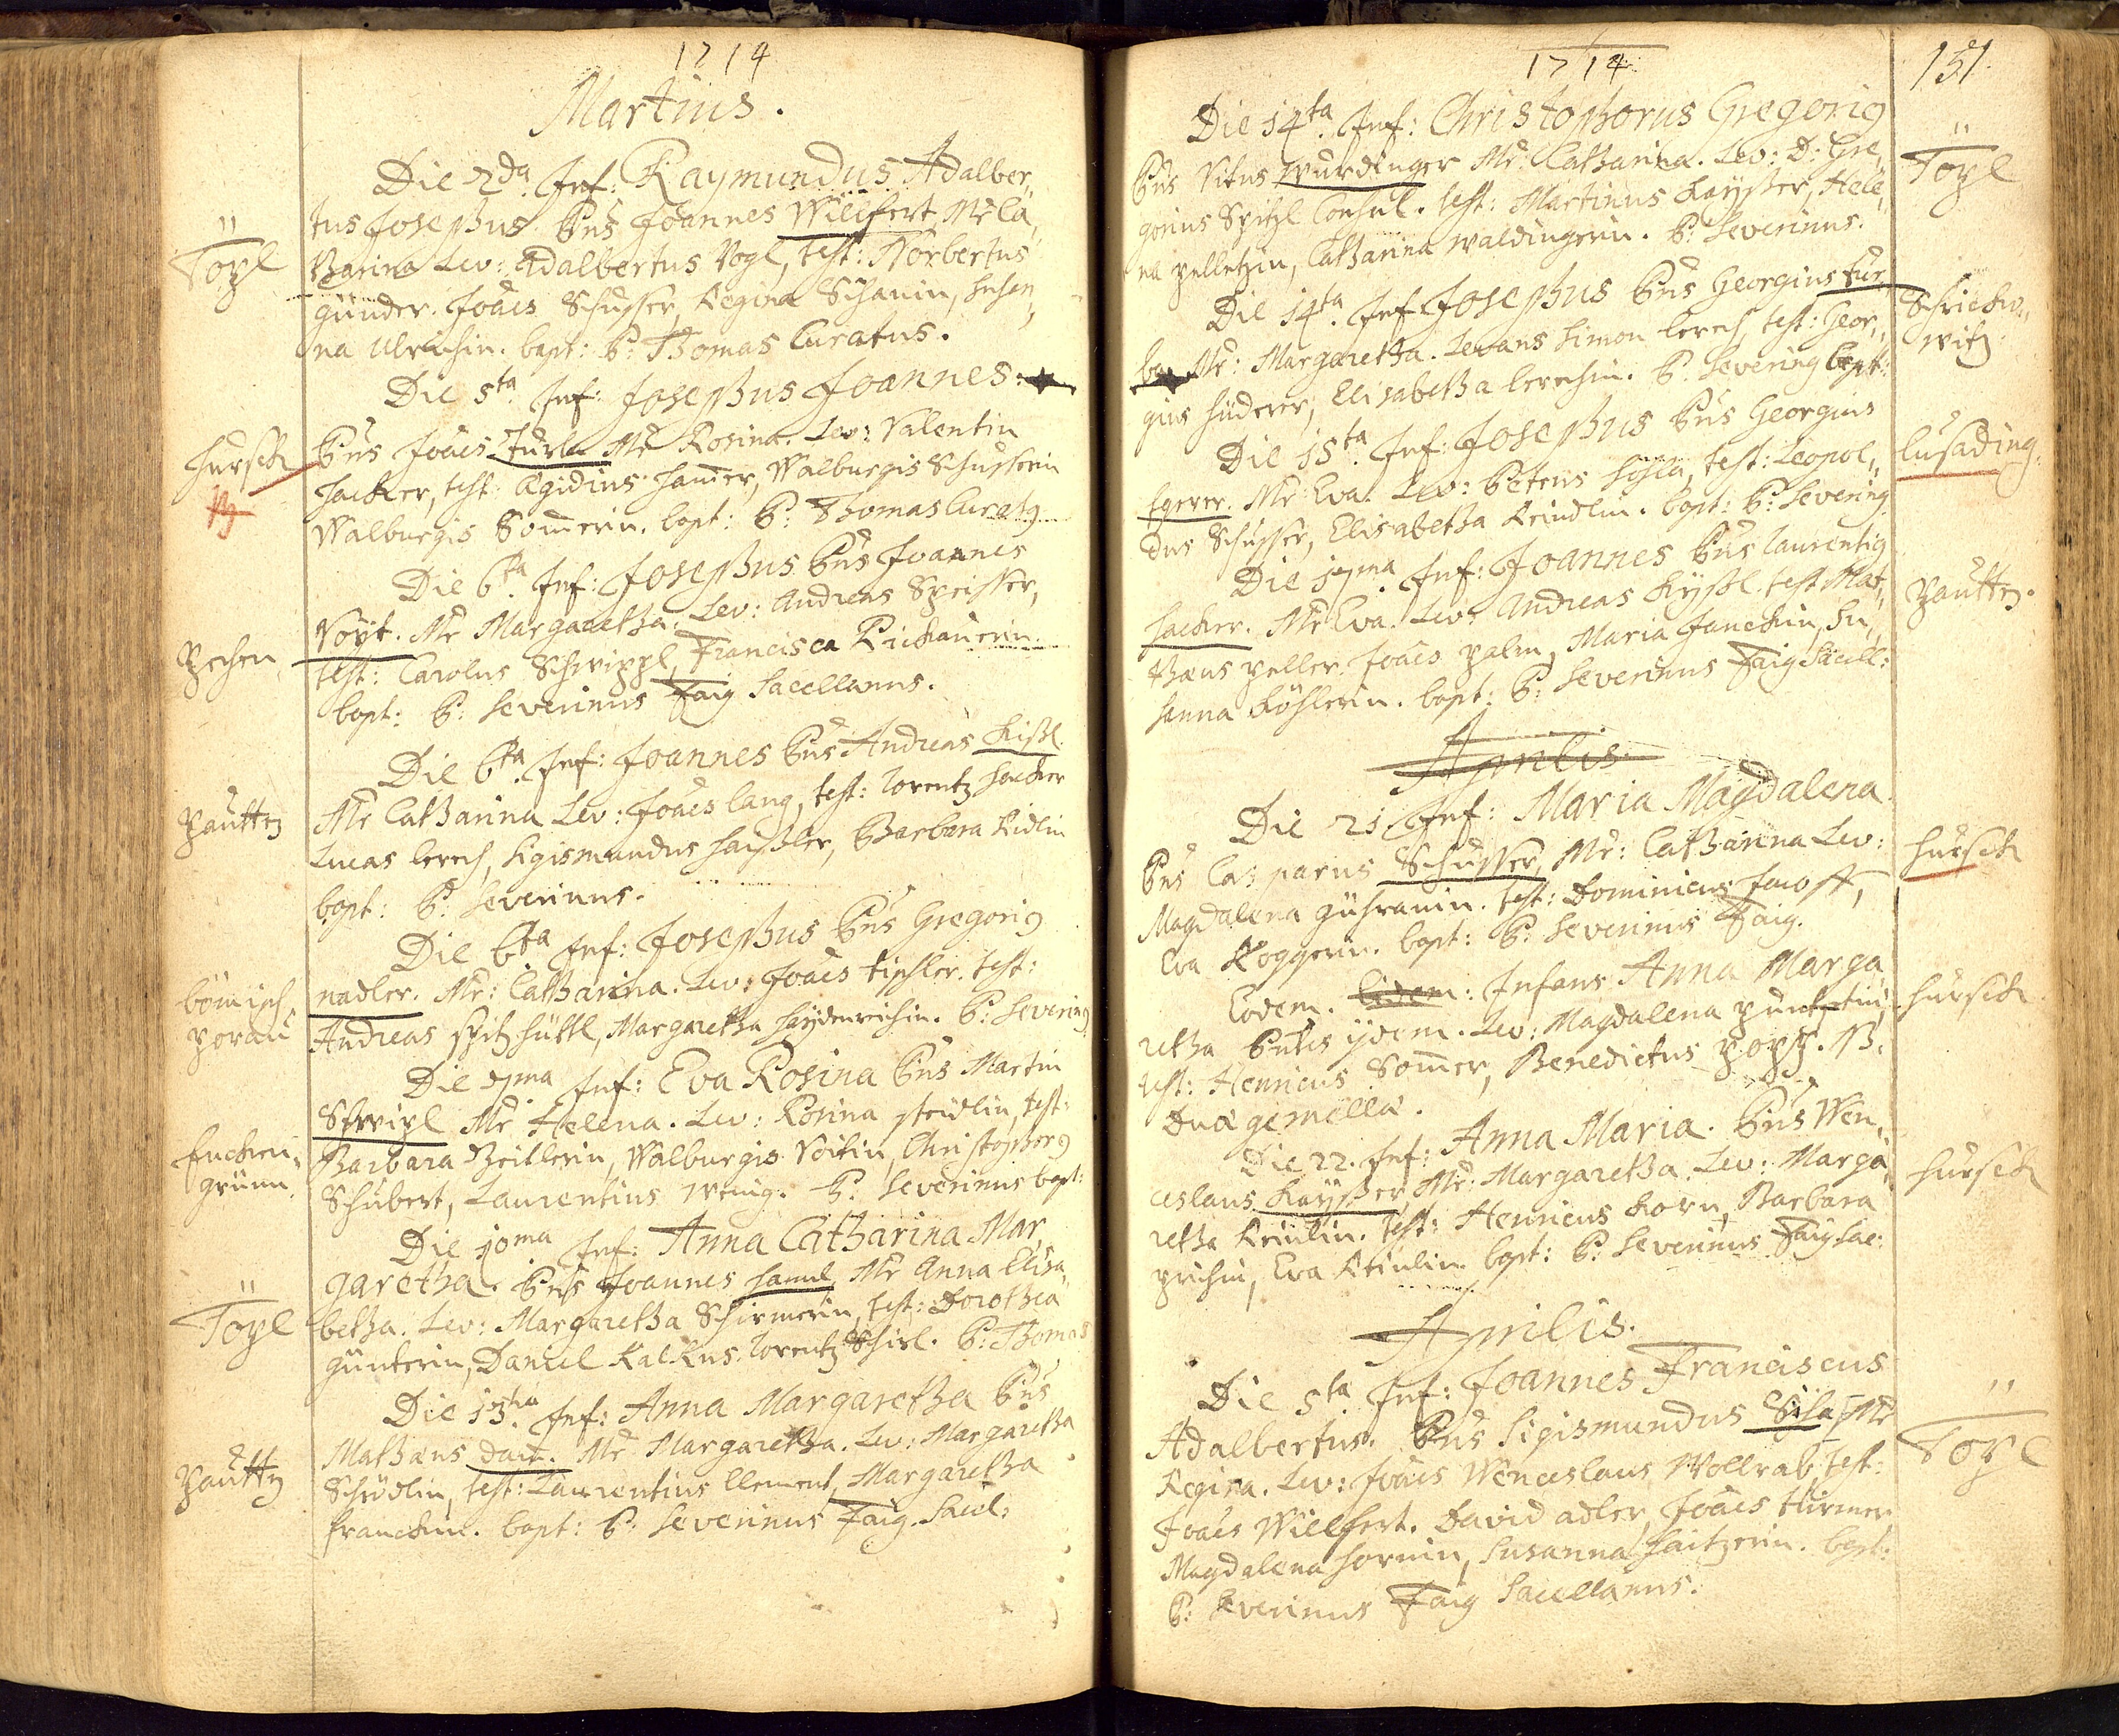 1714
Martius.
Die 2da. Inf: Raymundus Adalber,,
tus Josephus Pns Joannes Willfert Mr Ca,,
tharina Lev: Adalbertus Vogl, test: Norbertus
Töpl
günder. Joaes Schusser, Regina Schanin, Susan,,
na Ulrichin. bapt: P: Thomas Curatus.
Die 5ta. Inf: Josephus Joannes.
Hursch
Pns Joaes Turba Mr Rosina. Lev: Valentin
Hacker, test: Ægidius Hamer, Walburgis Schusserin
Walburgis Somerin. bapt: P: Thomas Curatg
Die 6ta. Inf: Josephus Pns Joannes
Voÿt. Mr Margaretha. Lev: Andreas Speisser,
Pechen
test: Carolus Schwippl, Francisca Rickauerin.
bapt: P: Severinus Faig Sacellanus.
Die 6ta. Inf: Joannes Pns Andreas Kißl.
Pauttn
Mr Catharina Lev: Joaes Lang, test: Lorentz Hacker
Lucas Lerch, Sigismundus Haißler, Barbara Ridlin
bapt: P: Severinus.
Die 6ta Inf: Josephus Pns Gregorig
bömisch
porau
nadler. Mr: Catharina. Lev: Joaes tischler. test:
Andreas spitzhüttl, Margaretha Haÿdenreichin. P: Severing
Die 7ma Inf: Eva Rosina Pns Martin
Schwipl Mr Helena. Lev: Rosina steidlin, test:
Enchen,,
grünn.
Barbara Zeitlerin, Walburgis Voitin, Christopherg
Schubert, Laurentius Wenig. P: Severinus bapt:
Die 10ma Inf: Anna Catharina Mar,,
garetha. Pns Joannes Hamml Mr Anna Elisa,,
Töpl
betha. Lev: Margaretha Schirmerin, test: Dorothea
günterin, Daniel Kalkus. Lorentz Schirl. P: Thomas
Die 13tia Inf: Anna Margaretha Pns
Mathæus Mr Margaretha. Lev: Margaretha
Pauttn
Schödlin, test: Laurentius Clement, Margaretha
franckin. bapt: P: Severinus Faig. Sacel:
1714
151.
Die 14ta. Inf: Christophorus Gregorig
Pns Vitus Wurdinger Mr: Catharina. Lev: D: Gre,,
Töpl
gorius Spitzl Consul. test: Martinus Kaÿßer, Hele,,
na pelletzin, Catharina Waldingerin. P: Severinus.
Die 14ta. Inf Josephus Pns Georgius Tur,,
Schricko,,
witz.
ba Mr: Margaretha. Levans Simon Lerch, test: Geor,,
gius Hüderer, Elisabetha Lerchin. P. Severing bapt:
Die 15ta Inf: Josephus Pns Georgius
Lusading.
Egerer. Mr: Eva. Lev: Petrus Hösla, test: Leopol,,
dus Schusser, Elisabetha Reindlin. bapt: P: Severing
Die 17ma. Inf: Joannes Pns Laurentig
Pauttn.
Hacker. Mr Eva. Lev: Andreas Kÿßl. test Mat,,
thæus peller. Joaes palm, Maria Janckin, Su,,
sanna Köhlerin. bapt: P: Severinus Faig Sacell:
Aprilis
Die 21. Inf: Maria Magdalena
Pns Casparus Schusser, Mr: Catharina Lev:
Hursch
Magdalena gühranin. test: Dominicus
Eva Roggerin. bapt: P: Severinus Faig.
Eodem. Eidem: Infans Anna Marga,,
Hursch.
retha Pntes ijdem. Lev: Magdalena
test: Henricus Somer, Benedictus Popp. B.
Duæ gemellæ.
Die 22. Inf: Anna Maria. Pns Wen,,
ceslaus Kaÿßer, Mr: Margaretha. Lev: Marga,,
Hursch
retha Reinlin. test: Henricus Korn, Barbara
Eva Reinlin bapt: P: Severinus Faig Sac:
Aprilis.
Die 5ta. Inf: Joannes Franciscus
Adalbertus. Pns Sigismundus Mr
Töpl
Regina. Lev: Joaes Wenceslaus Wollrab, test:
Joaes Willfert. David adler, Joaes türmer
Magdalena Hornin, Susanna Haitzerin. bapt:
P: Severinus Faig Sacellanus.